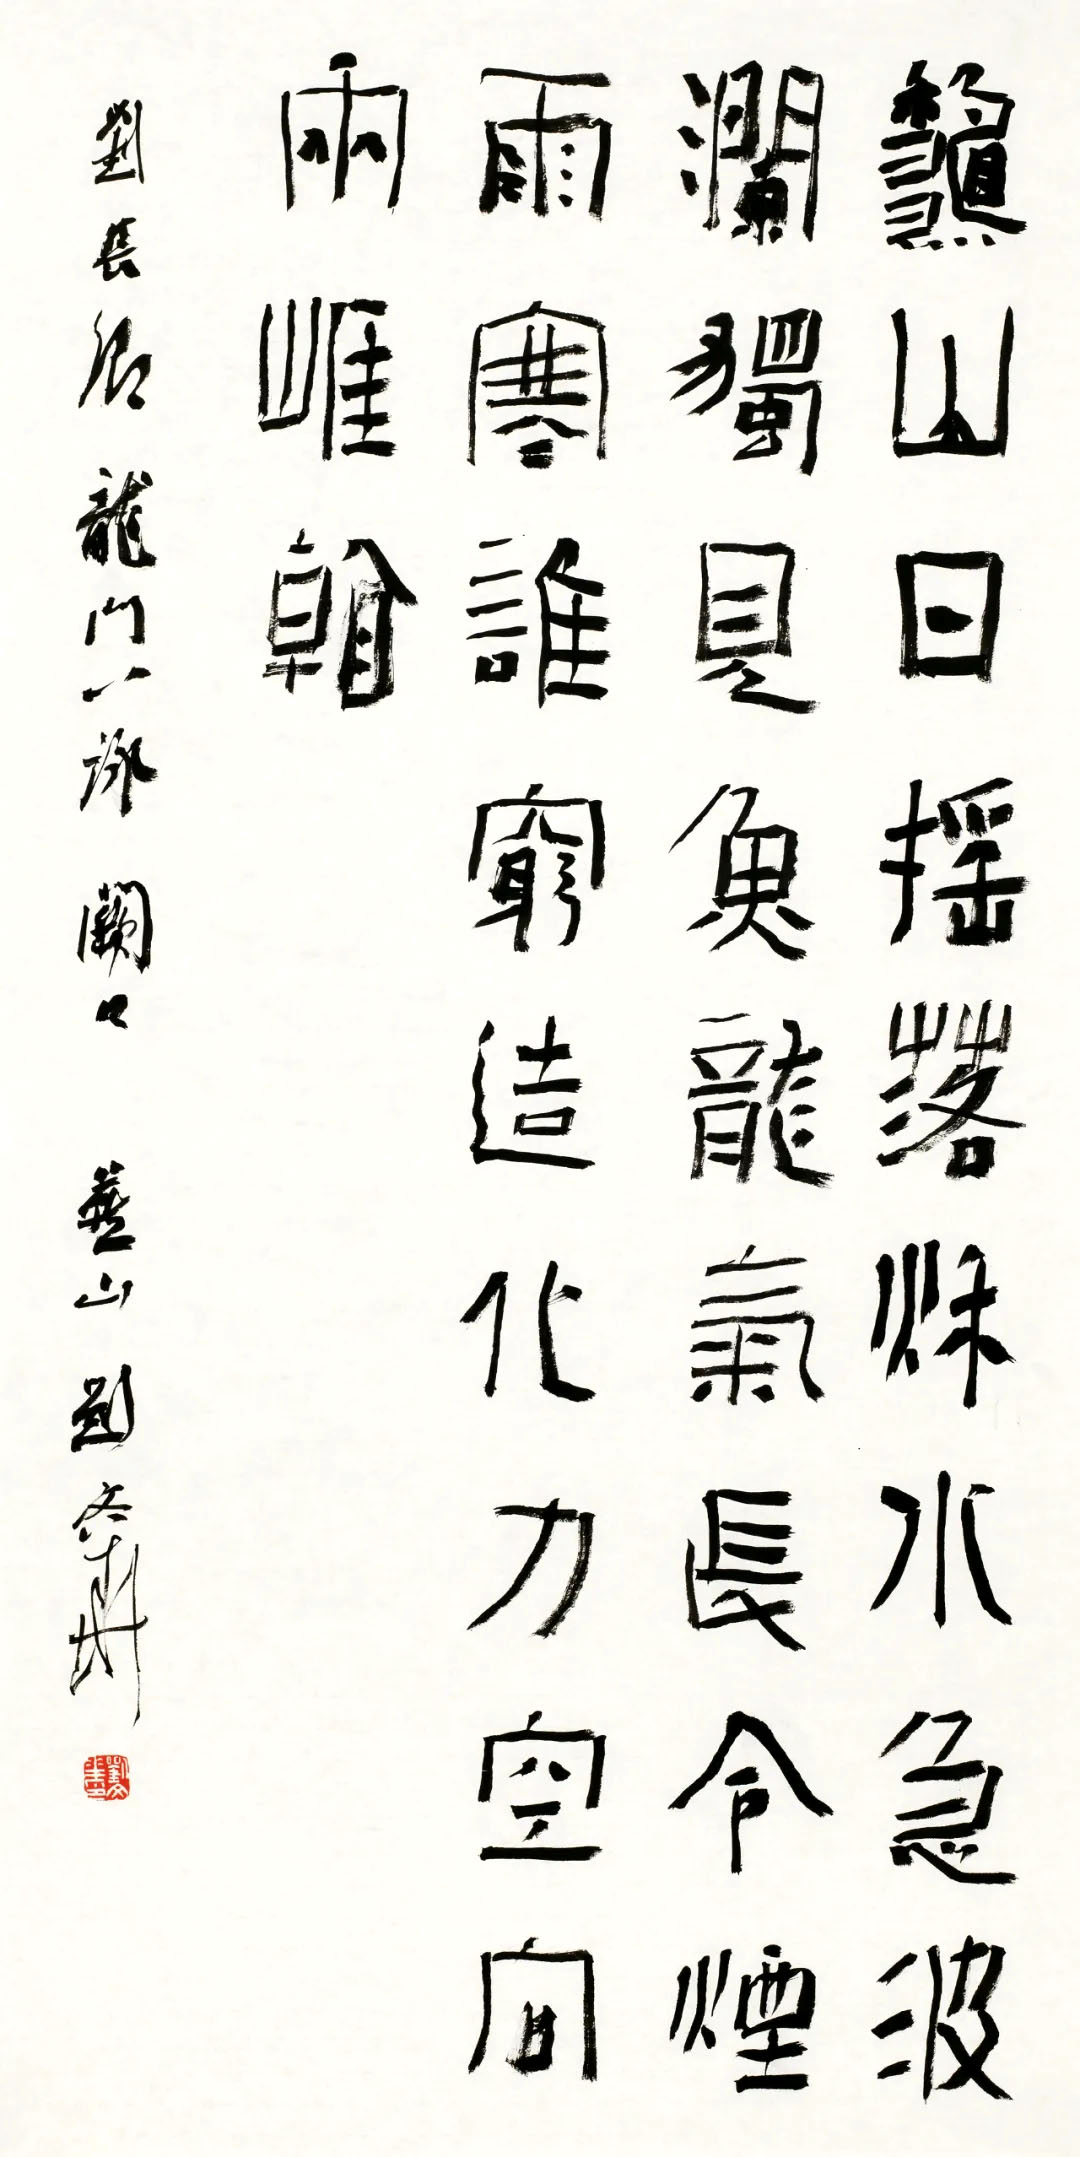 龝山日摇落秌水急波
瀾獨見魚龍氣長令煙
雨寒誰窮造化力空向
兩崖看
劉長卿龍門八詠闕口 山劉文華